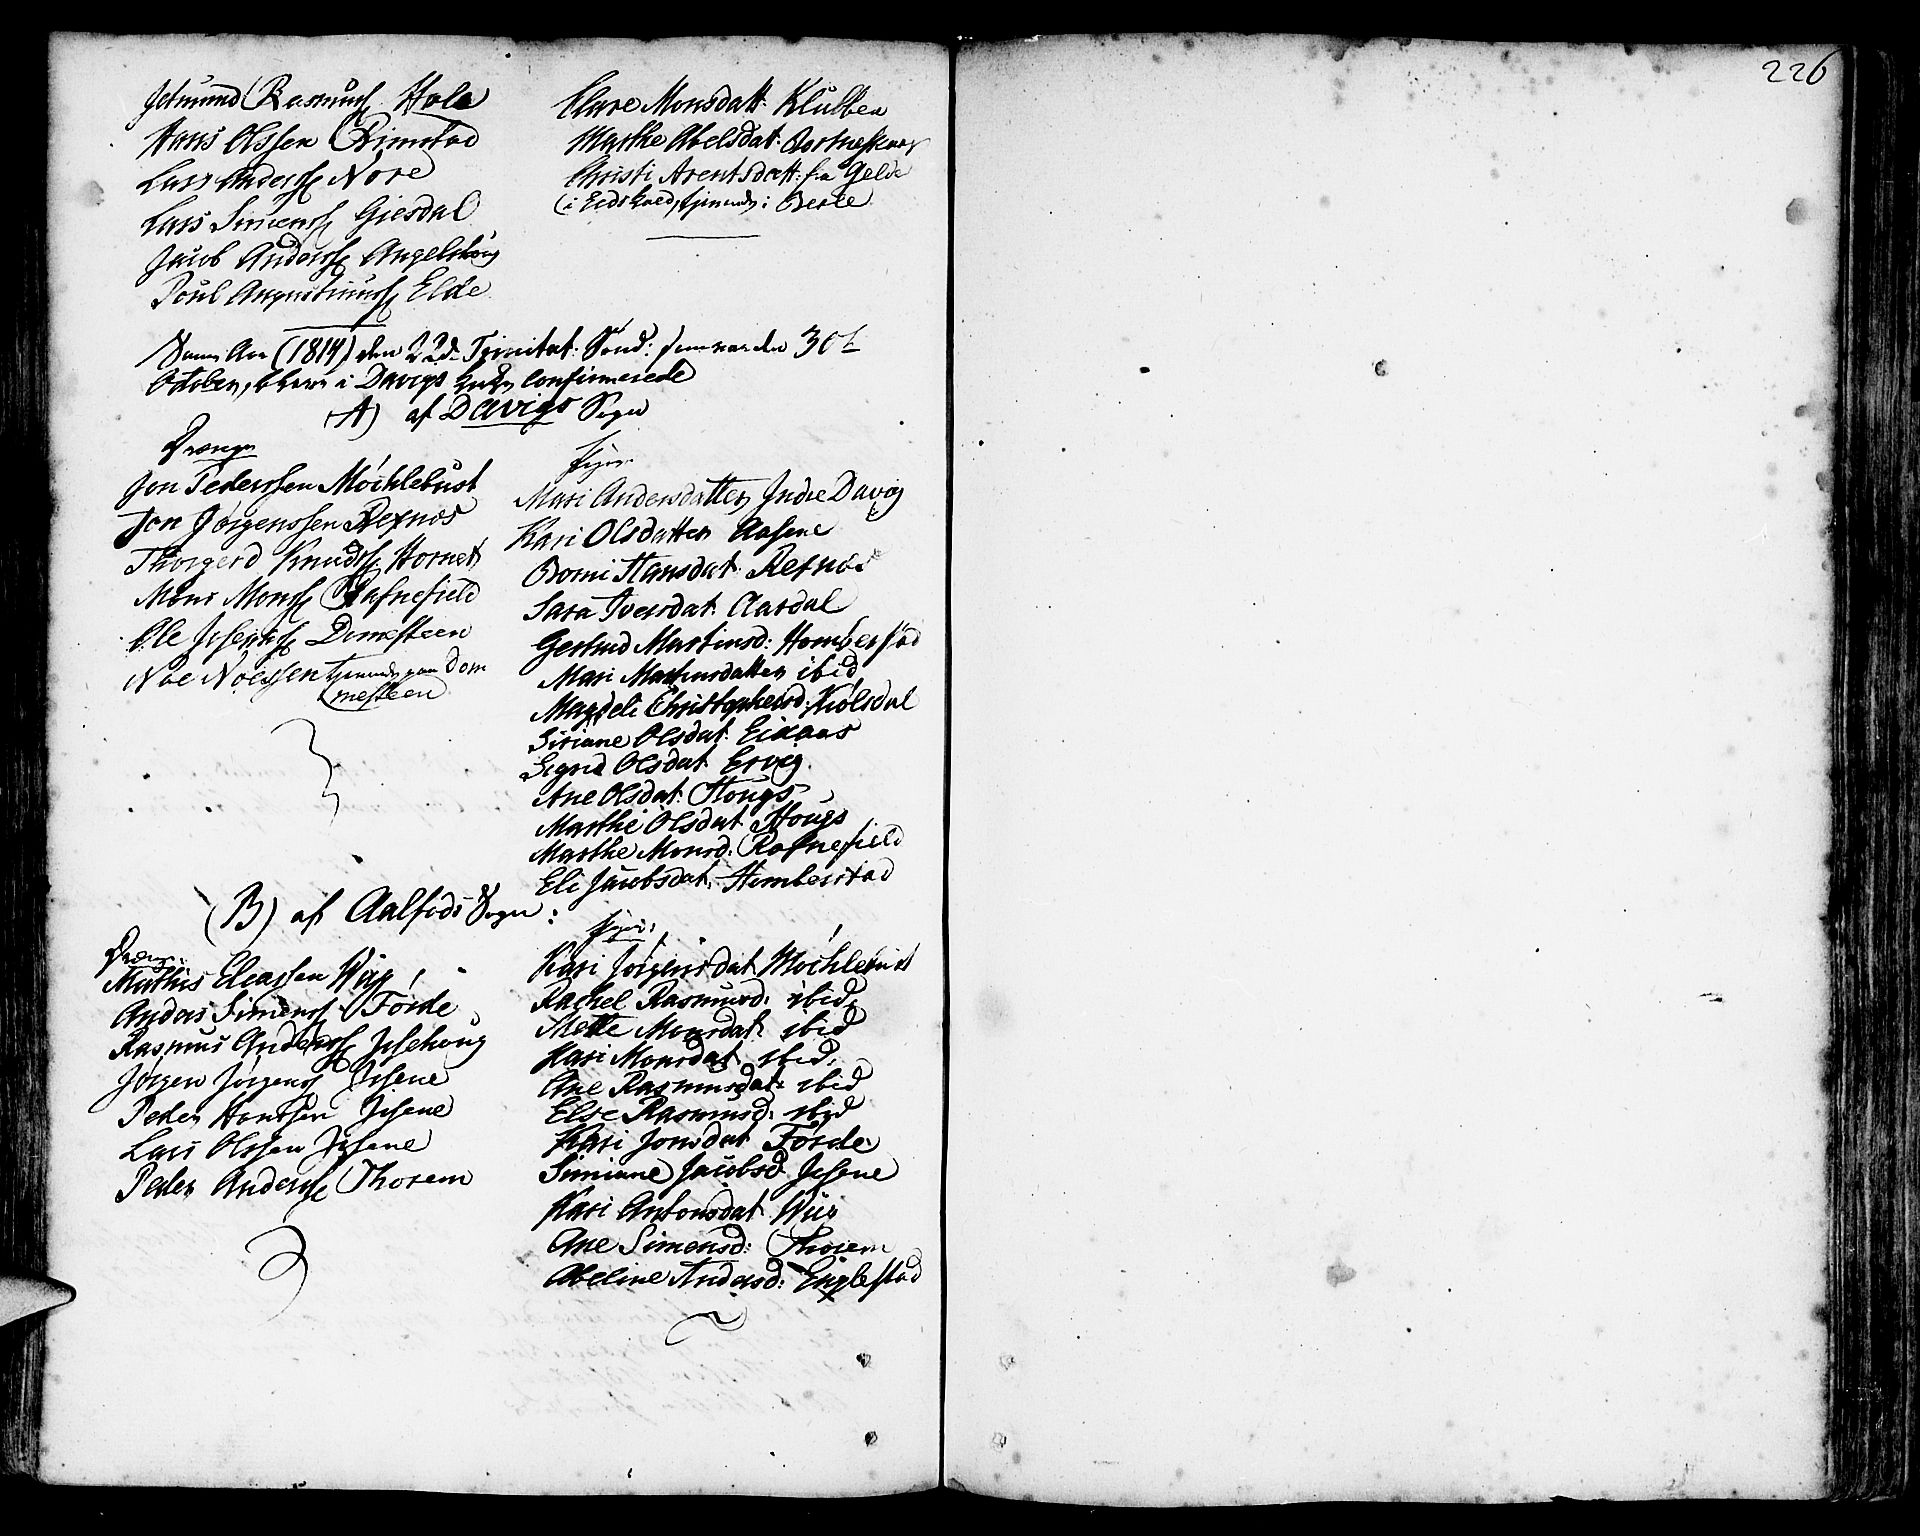 226
Jetmund Rasmuss. Hole
Hans Olssen Rimstad
Lars Anderss. Nore
Lars Simenss. Giesdal
Jacob Anderss. Angelshoug
Poul Augustinuss. Elde
Clare Monsdatt: Klubben
Marthe Abelsdat:
Christi Arentsdatt: fra Gelde
i Berle
Samme Aar (1814) den 22de Trinitat: Sønd: som var den 30te
October, bleve i Davigs Kirke confirmerede
A) af Davigs Sogn
Drenge
Jon Pederssen Møchlebust
Jon Jørgenssen Refnøs
Thorgerd Knudss. Hornet
Mons Monss. Rafnefield
Ole Jssenss. Domesteen
Noe Noessen tjenende paa Dom
mesteen
Piger
Mari Andersdatter Jndre Davig
Kari Olsdatter Aasene
Borni Hansdat: Refnøs
Sara Iversdat: Aardal
Gertrud Martinsd: Homberstad
Mari Martinsdatter ibid
Magdeli Christophersd: Kiølsdal
Siriane Olsdat: Eidaas
Sigrid Olsdat Ervig
Ane Olsdat: Hougs
Marthe Olsdat Hougs
Marthe Monsd: Rafnefield
Eli Jacobsdat: Homberstad
(B) af Aalfods Sogn:
Dreng:
Mathis Eleassen Wiig
Anders Simenss. Førde
Rasmus Anderss. Jsehoug
Jørgen Jørgenss. Jssene
Peder Hanssen Jssene
Lars Olssen Jssene
Peder Anderss. Thorem
Piger:
Kari Jørgensdat Møchlebust
Rachel Rasmusd: ibid:
Mette Monsdat: ibid
Kari Monsdat ibid:
Ane Rasmusdat: ibid
Else Rasmusd: ibid
Kari Jonsdat Førde
Simiane Jacobsd Jssene
Kari Antonsdat Wiig
Ane Simensd: Thorem
Abeline Andersd: Englestad